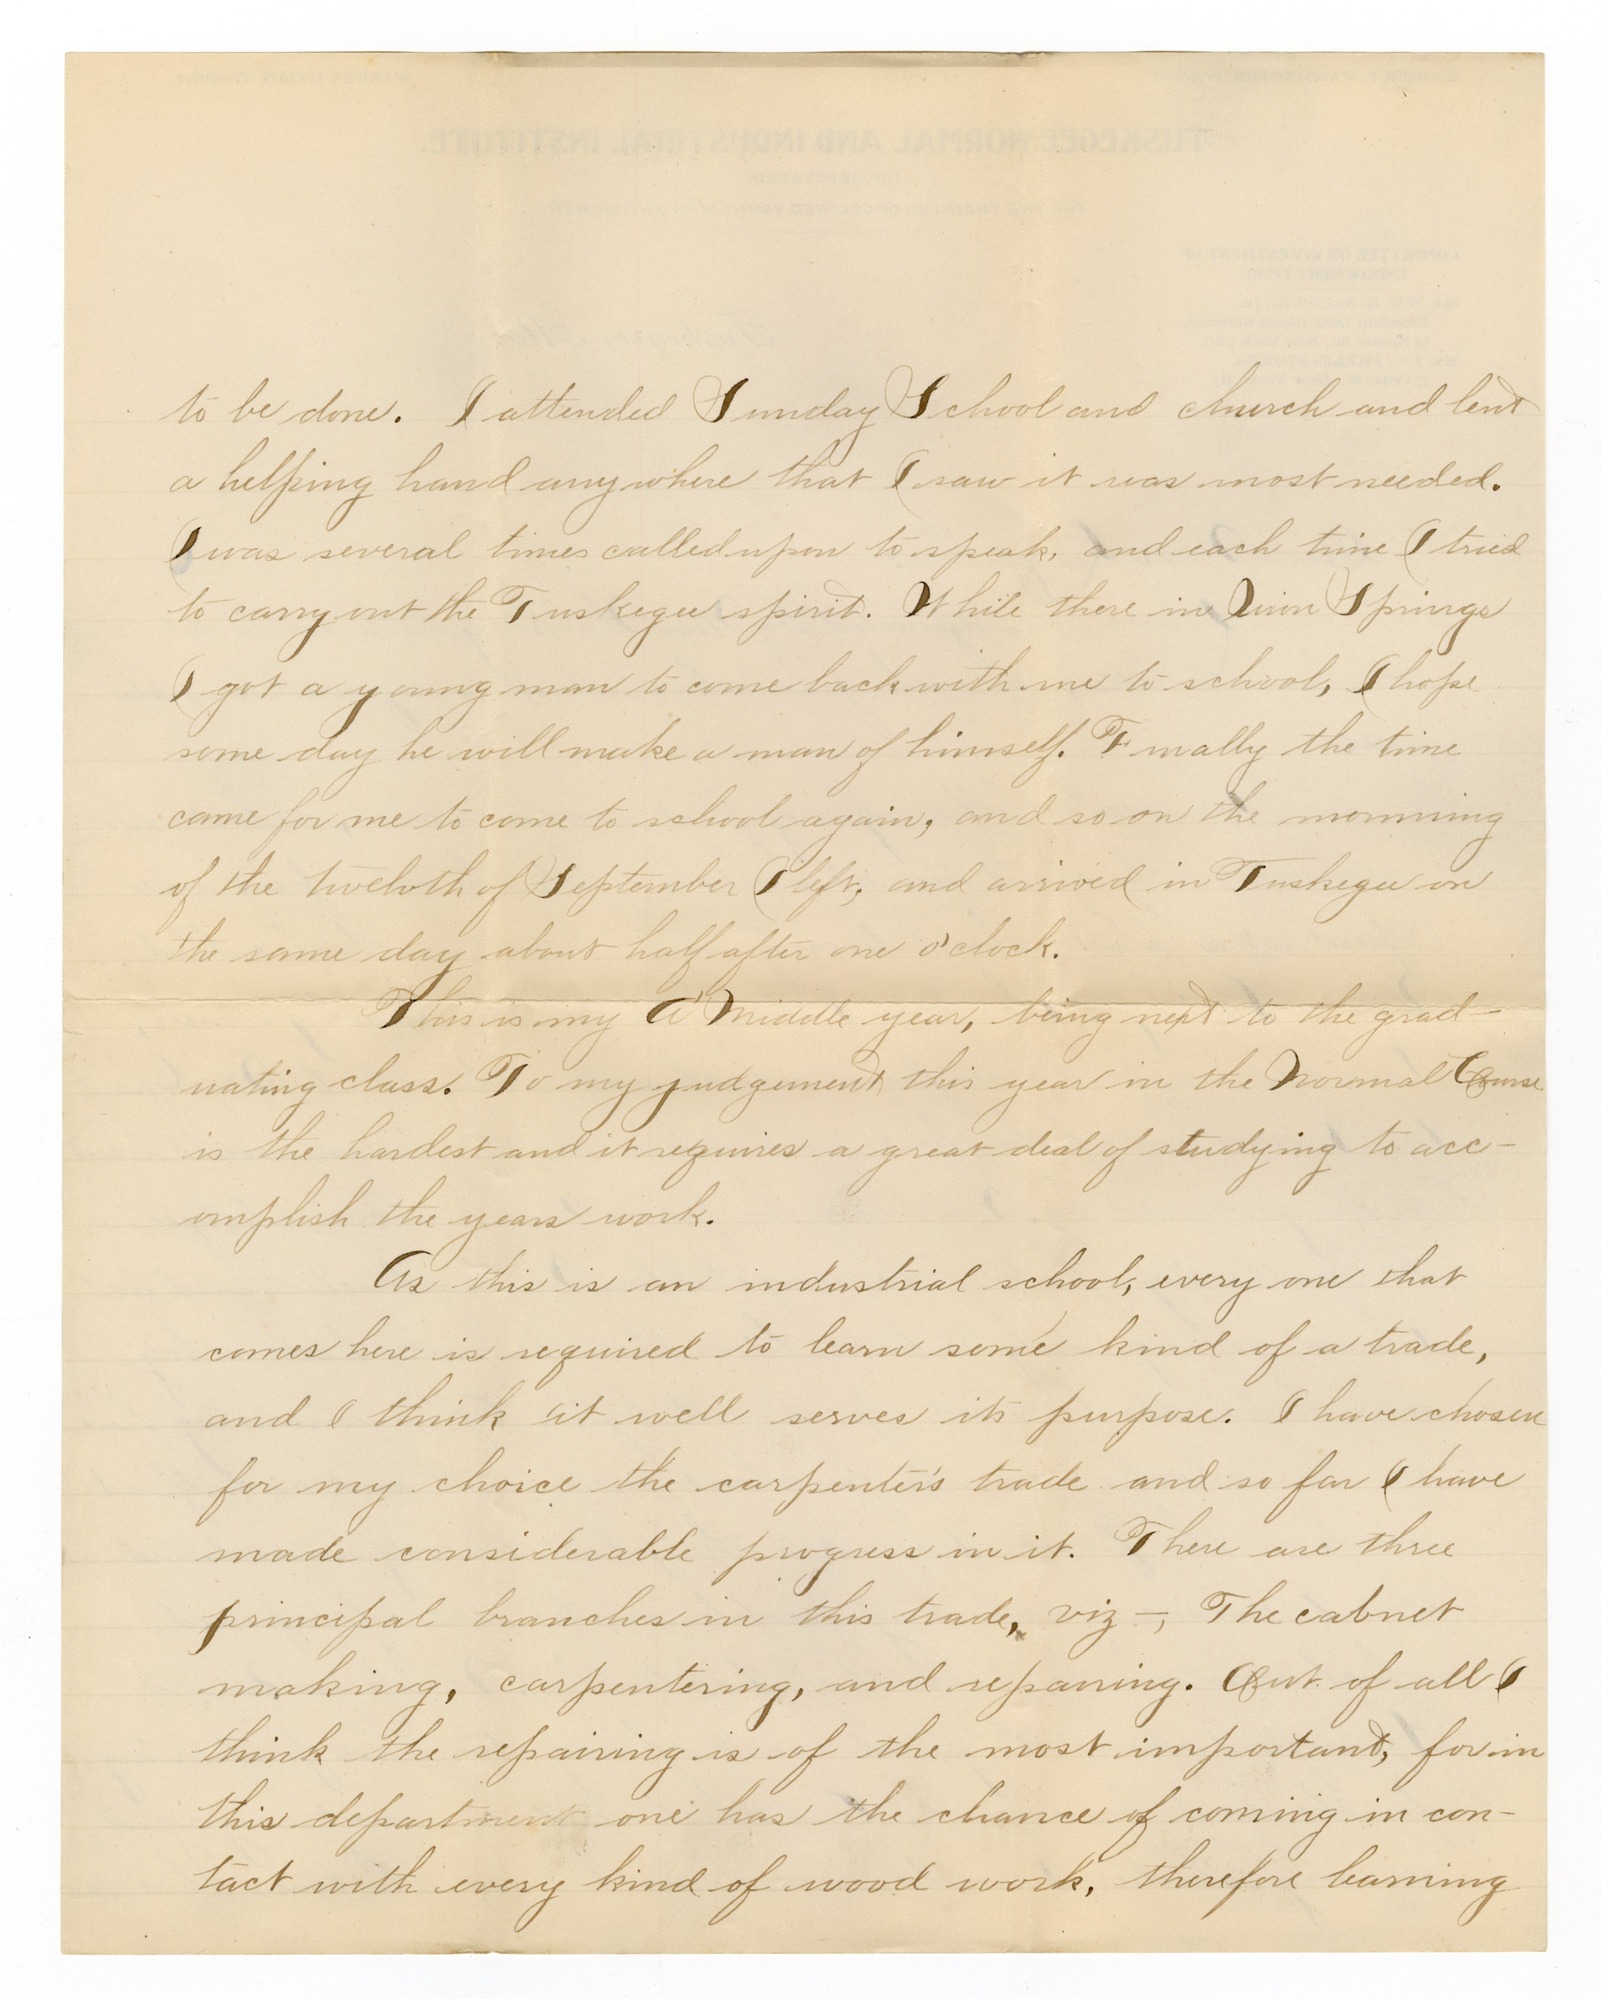 to be done. I attended Sunday School and church and lent
a helping hand anywhere that I saw it was most needed.
I was several times called upon to speak, and each time I tried
to carry out the Tuskegee spirit. While there in Union Springs
I got a young man to come back with me to school, I hope
some day he will make a man of himself. Finally the time
came for me to come to school again, and so on the morning
of the twelvth of September I left, and arrived in Tuskegee on
the same day about half after one o'clock.
This is my A Middle year, being next to the grad-
uating class. To my judgement this year in the Normal Course
is the hardest and it requires a great deal of studying to acc-
omplish the years work.
As this is an industrial school, every one that
comes here is required to learn some kind of a trade,
and I think it well serves its purpose. I have chosen
for my choice the carpenter's trade and so far I have
made considerable progress in it. There are three
principal branches in this trade, viz-, The cabnet
making, carpentering, and reparing. Out of all I
think the repairing is of the most important, for in
this department one has the chance of coming in con-
tact with every kind of wood work, therefore learning
TUSKEGEE NORMAL AND INDUSTRIAL INSTITUTE.
INCORPORATED
FOR THE TRAINING OF COLORED YOUNG MEN AND WOMEN
COMMITTEE ON INVESTMENT OF
ENDOWMENT FUND